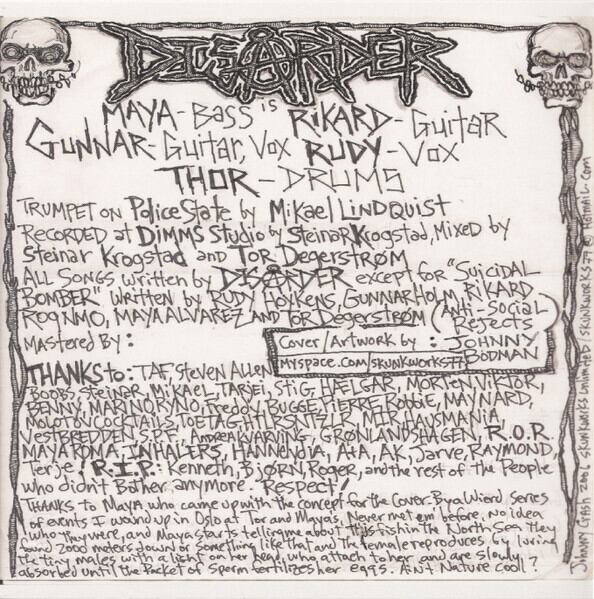 DISÅRDER
is
MAYA-BASS RiKARD-GuitAR
GUNNAR-Guitar, Vox RUDY-Vox
THOR-DRUMS
TRUMPET ON PoliceState by Mikael LINDQUIST
RECORDED at DIMMS Studio by Steinar Krogstad, Mixed by
Steinar Krogstad AND TOR DegerstrøM
ALL SONGS WRitten by DISÅRDER except for "Suicidal
BOMBER" written by RUDY HOXKENS, GUNNAR HOLM, RIKARD
ROGNMO, MAYA ALVAREZ AND TOR DegerstrøM (Anti-Social
Rejects)
MAstered By:
Cover/Artwork by: JOHNNY
BODMAN
myspace.com/skunkworks77
THANKS to: TAF, Steven ALLEN
BOOBS, Steinar, MiKAEL, TARJEI, StiG, HAELGAR, MORTEN, VIKTOR,
BENNY, MARINO, RYNO, freddy, BUGGE, PIERRE, Robbie, MAYNARD,
MOLOTOV COCKTAILS, TOETAG, HILRSNITZLZ, MER HAUSMANIA,
VESTBREDDEN, S.P.F., ANDREA KVARVING, GRØNLANDSHAGEN, R.O.R.
MAYA ROMA, INHALERS, HANNeNdiA, AtA, AK, Jarve, RAYMOND,
Terje! R.I.P.: Kenneth, BjøRN, Roger, and the rest of the People
who didn't Bother anymore. Respect!
THANKS to MAYA who came up with the concept for the cover. By a Wierd series
of events I wound up in Oslo at Tor and Maya's. Never met em before, no idea
who they were, and Maya starts telling me about this fish in the North Sea they
found 2000 meters down or something like that and the female reproduces by luring
the tiny males with a light on her head who attach to her and are slowly
absorbed until the Packet of sperm fertilizes her eggs. Ain't Nature cool!?
JOHNNY CRASH 2006 SKUNKWORKS UNLIMITED/SKUNKWORKS77@HOTMAIL.COM